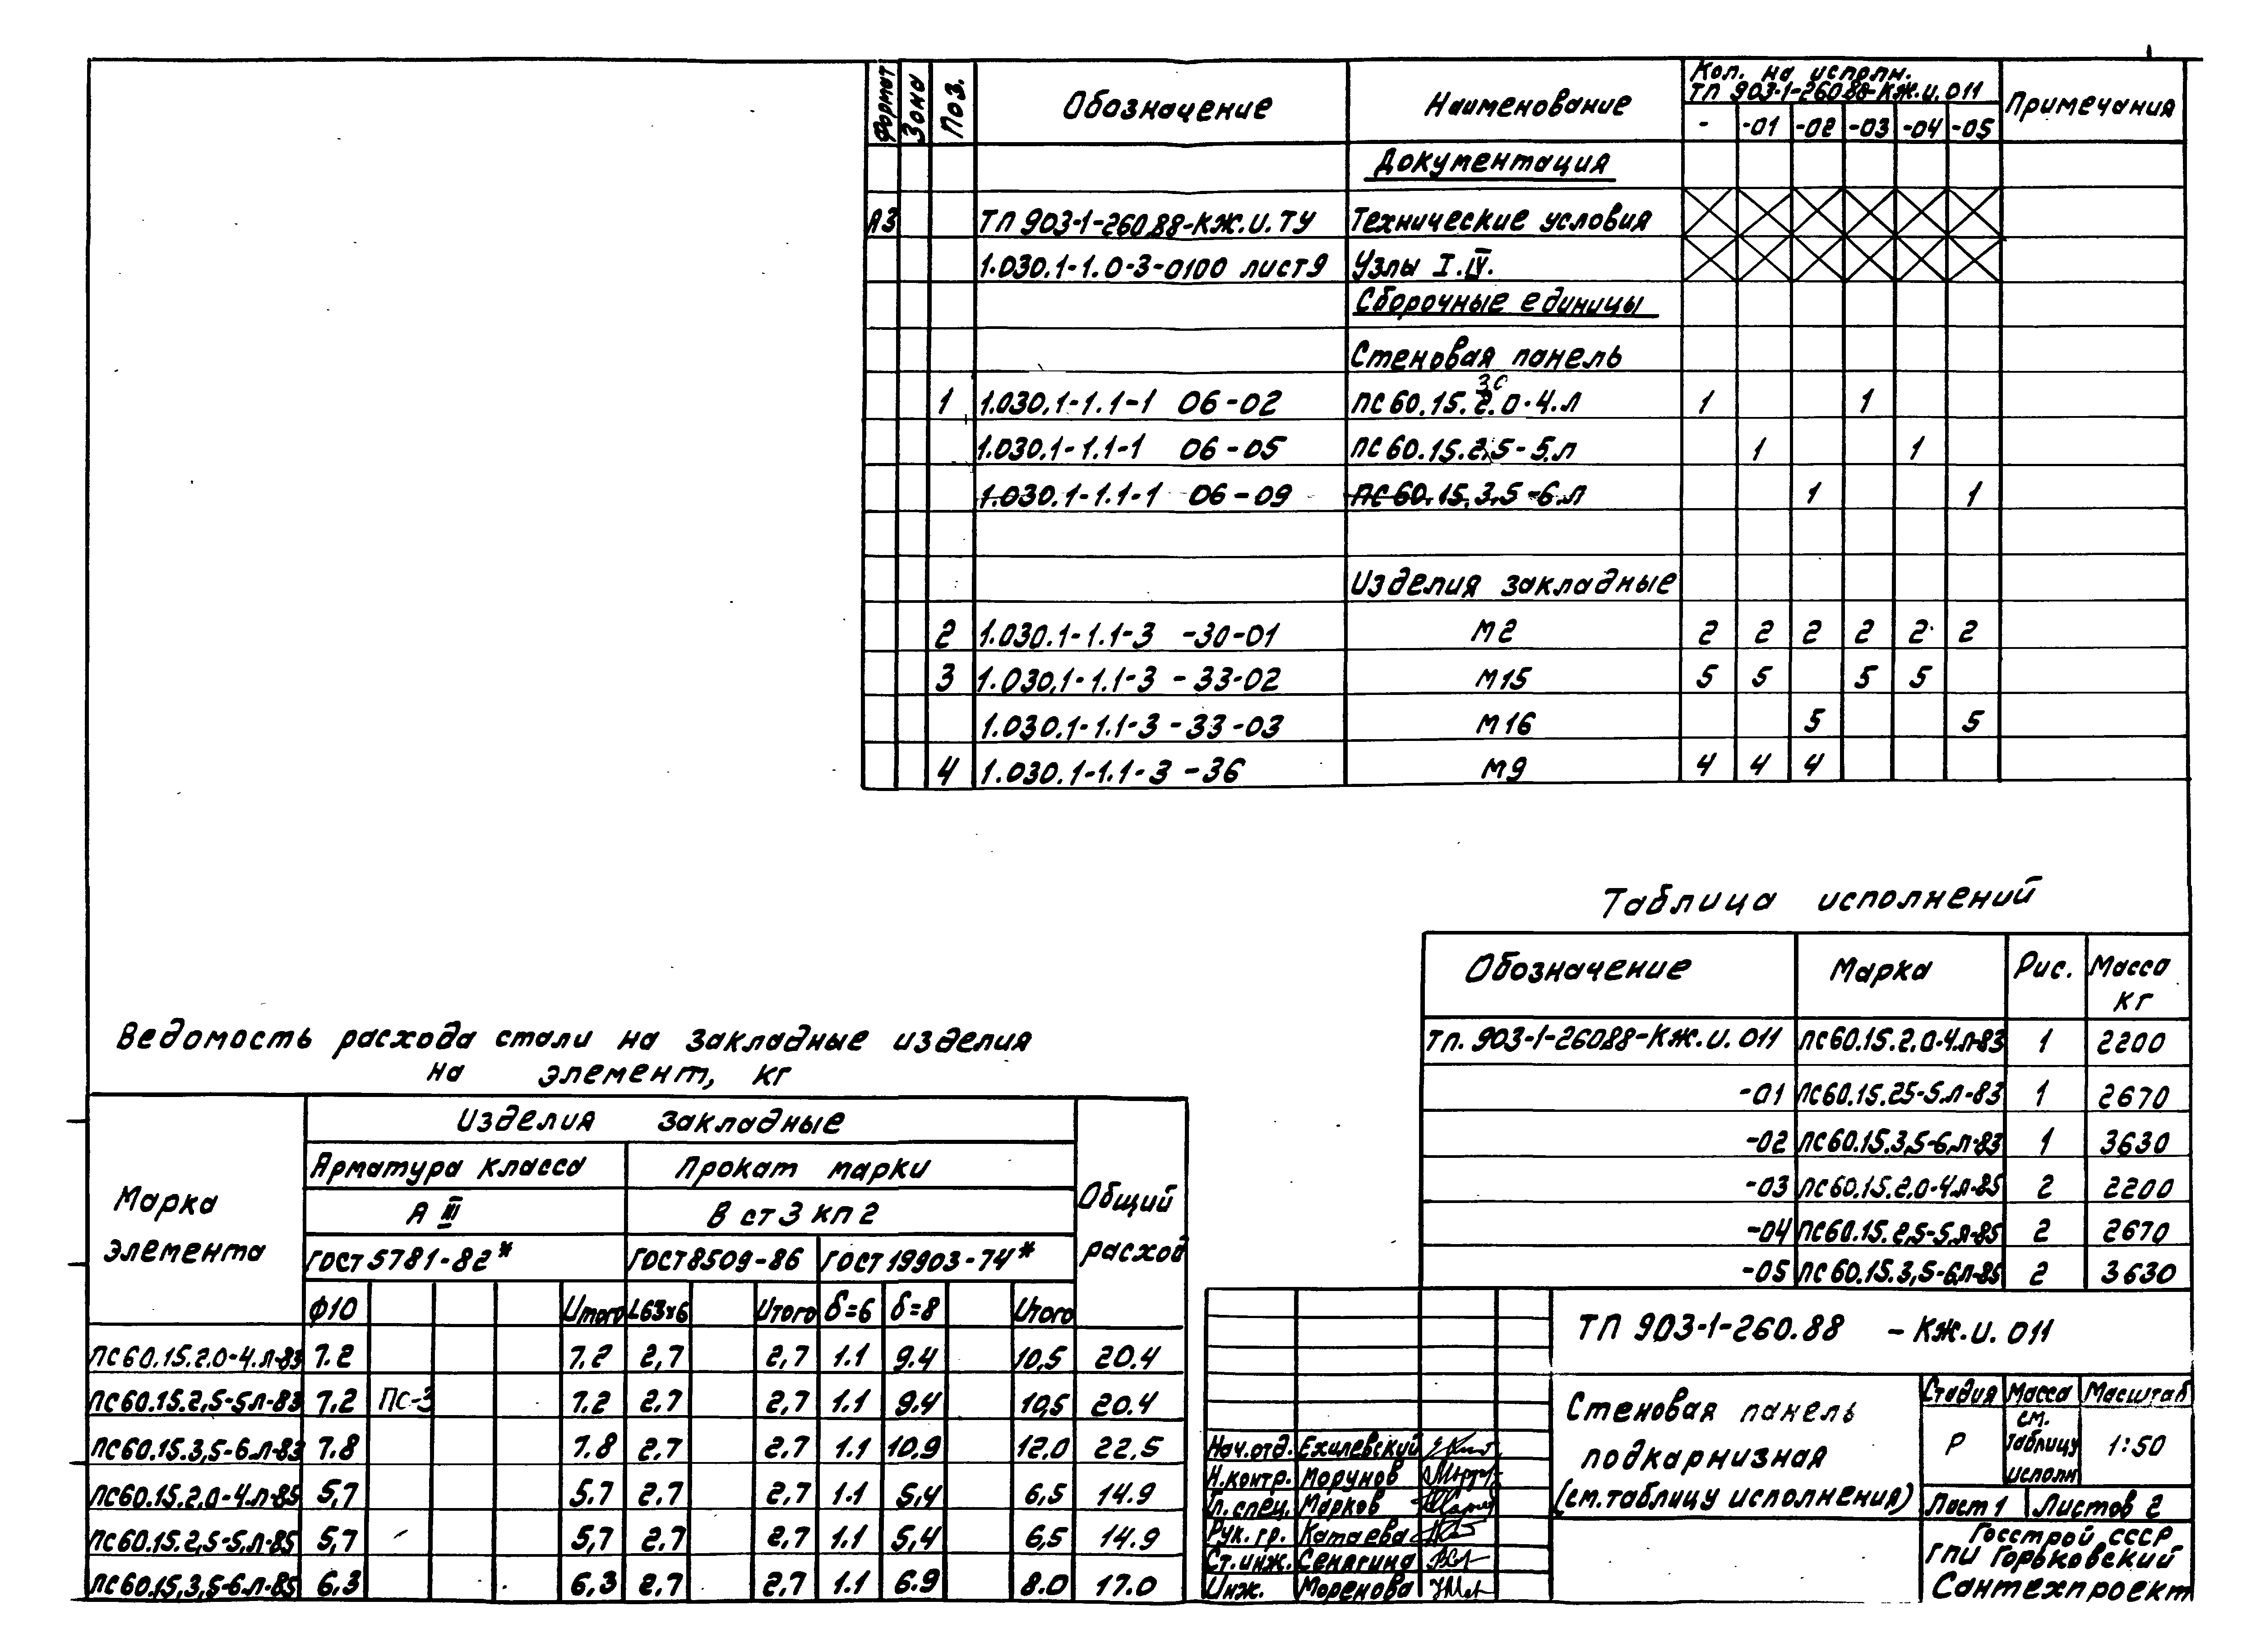 Формат Зона Поз. Обозначение Наименование Кол. на исполн. ТП 903-1-260.88-КЖ.И.011 Примечания
- -01 -02 -03 -04 -05
Документация
А3 ТП 903-1-260.88-КЖ.И.ТУ Технические условия
1.030.1-1.0-3-0100 лист 9 Узлы I.IV.
Сборочные единицы
Стеновая панель
30
1 1.030.1-1.1-1 06-02 ПС 60.15.2.0-4.Л 1 1
1.030.1-1.1-1 06-05 ПС 60.15.2,5-5.Л 1 1
1.030.1-1.1-1 06-09 ПС 60.15.3,5-6.Л 1 1
Изделия закладные
2 1.030.1-1.1-3 -30-01 М2 2 2 2 2 2 2
3 1.030.1-1.1-3 -33-02 М15 5 5 5 5
1.030.1-1.1-3 -33-03 М16 5 5
4 1.030.1-1.1-3 -36 М9 4 4 4
Таблица исполнений
Обозначение Марка Рис. Масса кг
ТП. 903-1-260.88-КЖ.И.011 ПС60.15.2.0-4.Л-83 1 2200
-01 ПС60.15.25-5.Л-83 1 2670
-02 ПС60.15.3,5-6.Л-83 1 3630
-03 ПС60.15.2.0-4.Л-85 2 2200
-04 ПС60.15.2,5-5.Л-85 2 2670
-05 ПС60.15.3,5-6.Л-85 2 3630
Ведомость расхода стали на закладные изделия
на элемент, кг
Марка элемента Изделия закладные Общий расход
Арматура класса Прокат марки
А III В ст 3 кп 2
ГОСТ 5781-82* ГОСТ 8509-86 ГОСТ 19903-74*
Ф10 Итого L63x6 Итого δ=6 δ=8 Итого
ПС60.15.2.0-4.Л-83 7.2 7.2 2,7 2,7 1.1 9.4 10,5 20.4
ПС60.15.2,5-5Л-83 7.2 ПС-3 7.2 2.7 2,7 1.1 9.4 10,5 20.4
ПС60.15.3,5-6.Л-83 7.8 7.8 2.7 2.7 1.1 10.9 12.0 22.5
ПС60.15.2.0-4.Л-85 5,7 5.7 2.7 2.7 1.1 5,4 6,5 14.9
ПС60.15.2,5-5.Л-85 5,7 5,7 2.7 2,7 1.1 5,4 6,5 14.9
ПС60.15.3,5-6.Л-85 6.3 6,3 2.7 2.7 1.1 6.9 8.0 17.0
ТП 903-1-260.88 -КЖ.И.011
Стеновая панель
подкарнизная
(см.таблицу исполнения)
Стадия Масса Масштаб
Р см. таблицу исполн 1:50
Лист 1 Листов 2
Нач.отд. Ехилевский
Н.контр. Морунов
Гл.спец. Марков
Рук. гр. Катаева
Ст.инж. Сенягина
Инж. Моренова
Госстрой СССР
ГПИ Горьковский
Сантехпроект